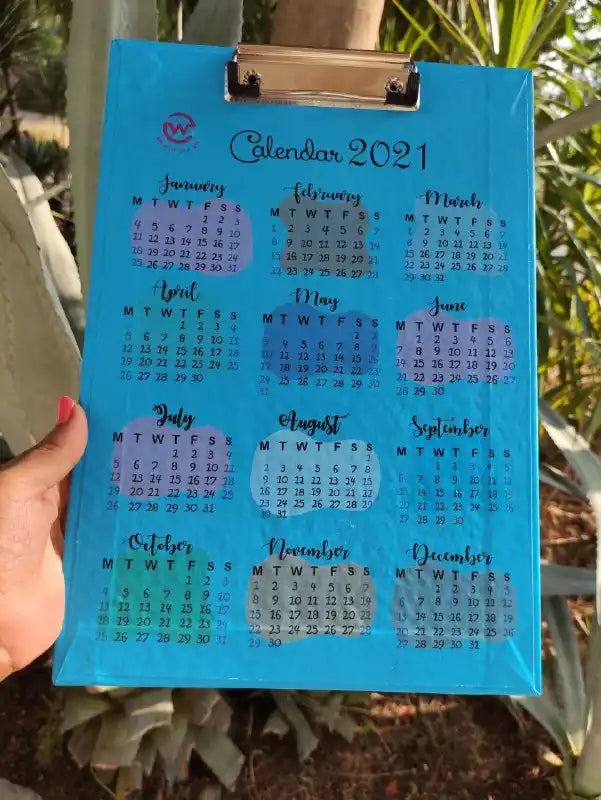 W
Calendar 2021
January
M T W T F S S
1 2 3
4 5 6 7 8 9 10
11 12 13 14 15 16 17
18 19 20 21 22 23 24
25 26 27 28 29 30 31
February
M T W T F S S
1 2 3 4 5 6 7
8 9 10 11 12 13 14
15 16 17 18 19 20 21
22 23 24 25 26 27 28
March
M T W T F S S
1 2 3 4 5 6 7
8 9 10 11 12 13 14
15 16 17 18 19 20 21
22 23 24 25 26 27 28
29 30 31
April
M T W T F S S
1 2 3 4
5 6 7 8 9 10 11
12 13 14 15 16 17 18
19 20 21 22 23 24 25
26 27 28 29 30
May
M T W T F S S
1 2
3 4 5 6 7 8 9
10 11 12 13 14 15 16
17 18 19 20 21 22 23
24 25 26 27 28 29 30
31
June
M T W T F S S
1 2 3 4 5 6
7 8 9 10 11 12 13
14 15 16 17 18 19 20
21 22 23 24 25 26 27
28 29 30
July
M T W T F S S
1 2 3 4
5 6 7 8 9 10 11
12 13 14 15 16 17 18
19 20 21 22 23 24 25
26 27 28 29 30 31
August
M T W T F S S
1
2 3 4 5 6 7 8
9 10 11 12 13 14 15
16 17 18 19 20 21 22
23 24 25 26 27 28 29
30 31
September
M T W T F S S
1 2 3 4 5
6 7 8 9 10 11 12
13 14 15 16 17 18 19
20 21 22 23 24 25 26
27 28 29 30
October
M T W T F S S
1 2 3
4 5 6 7 8 9 10
11 12 13 14 15 16 17
18 19 20 21 22 23 24
25 26 27 28 29 30 31
November
M T W T F S S
1 2 3 4 5 6 7
8 9 10 11 12 13 14
15 16 17 18 19 20 21
22 23 24 25 26 27 28
29 30
December
M T W T F S S
1 2 3 4 5
6 7 8 9 10 11 12
13 14 15 16 17 18 19
20 21 22 23 24 25 26
27 28 29 30 31